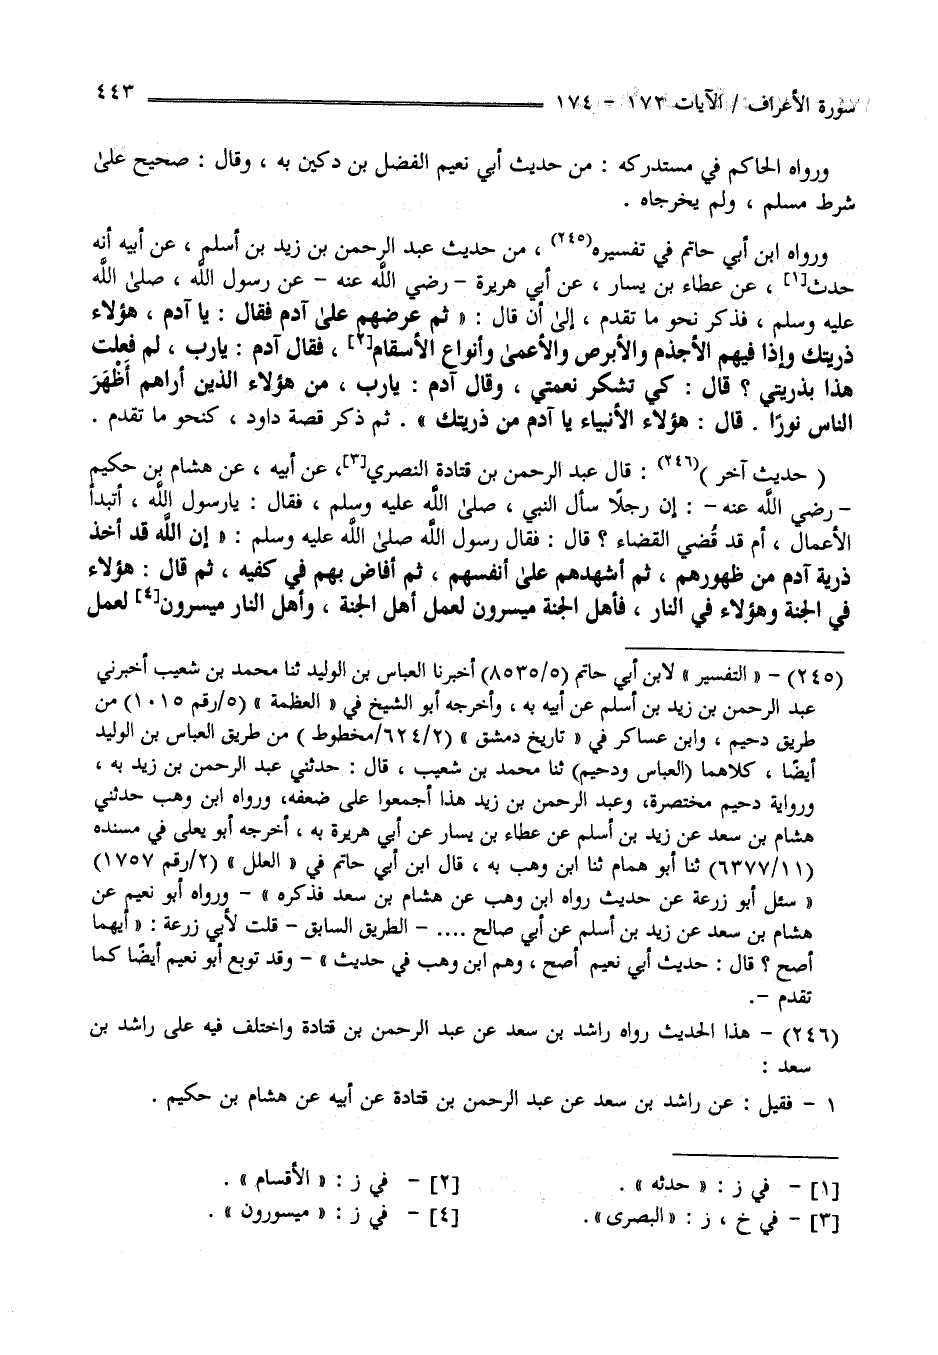 سورة الأعراف / الآيات ١٧٢ - ١٧٤ ٤٤٣
ورواه الحاكم في مستدركه : من حديث أبي نعيم الفضل بن دكين به ، وقال : صحيح علىٰ
شرط مسلم ، ولم يخرجاه .
ورواه ابن أبي حاتم في تفسيره(٢٤٥) ، من حديث عبد الرحمن بن زيد بن أسلم ، عن أبيه أنه
حدث[١] ، عن عطاء بن يسار ، عن أبي هريرة - رضي اللَّه عنه - عن رسول اللَّه ، صلىٰ اللَّه
عليه وسلم ، فذكر نحو ما تقدم ، إلىٰ أن قال : « ثم عرضهم علىٰ آدم فقال : يا آدم ، هؤلاء
ذريتك وإذا فيهم الأجذم والأبرص والأعمىٰ وأنواع الأسقام[٢] ، فقال آدم : يارب ، لم فعلت
هذا بذريتي ؟ قال : كي تشكر نعمتي ، وقال آدم : يارب ، من هؤلاء الذين أراهم أَظْهَرَ
الناس نورًا . قال : هؤلاء الأنبياء يا آدم من ذريتك » . ثم ذكر قصة داود ، كنحو ما تقدم .
( حديث آخر )(٢٤٦) : قال عبد الرحمن بن قتادة النصري[٣]، عن أبيه ، عن هشام بن حكيم
- رضي اللَّه عنه - : إن رجلًا سأل النبي ، صلىٰ اللَّه عليه وسلم ، فقال : يارسول اللَّه ، أتبدأ
الأعمال ، أم قد قُضي القضاء ؟ قال : فقال رسول اللَّه صلىٰ اللَّه عليه وسلم : « إن اللَّه قد أخذ
ذرية آدم من ظهورهم ، ثم أشهدهم علىٰ أنفسهم ، ثم أفاض بهم في كفيه ، ثم قال : هؤلاء
في الجنة وهؤلاء في النار ، فأهل الجنة ميسرون لعمل أهل الجنة ، وأهل النار ميسرون[٤] لعمل
(٢٤٥) - « التفسير » لابن أبي حاتم (٨٥٣٥/٥) أخبرنا العباس بن الوليد ثنا محمد بن شعيب أخبرني
عبد الرحمن بن زيد بن أسلم عن أبيه به ، وأخرجه أبو الشيخ في « العظمة » (٥/رقم ١٠١٥) من
طريق دحيم ، وابن عساكر في « تاريخ دمشق » (٦٢٤/٢/مخطوط ) من طريق العباس بن الوليد
أيضًا ، كلاهما (العباس ودحيم) ثنا محمد بن شعيب ، قال : حدثني عبد الرحمن بن زيد به ،
ورواية دحيم مختصرة، وعبد الرحمن بن زيد هذا أجمعوا على ضعفه، ورواه ابن وهب حدثني
هشام بن سعد عن زيد بن أسلم عن عطاء بن يسار عن أبي هريرة به ، أخرجه أبو يعلى في مسنده
(٦٣٧٧/١١) ثنا أبو همام ثنا ابن وهب به ، قال ابن أبي حاتم في « العلل » (٢/رقم ١٧٥٧)
« سئل أبو زرعة عن حديث رواه ابن وهب عن هشام بن سعد فذكره » - ورواه أبو نعيم عن
هشام بن سعد عن زيد بن أسلم عن أبي صالح .... - الطريق السابق - قلت لأبي زرعة : « أيهما
أصح ؟ قال : حديث أبي نعيم أصح ، وهم ابن وهب في حديث » - وقد توبع أبو نعيم أيضًا كما
تقدم -.
(٢٤٦) - هذا الحديث رواه راشد بن سعد عن عبد الرحمن بن قتادة واختلف فيه على راشد بن
سعد :
١ - فقيل : عن راشد بن سعد عن عبد الرحمن بن قتادة عن أبيه عن هشام بن حكيم .
[١] - في ز : « حدثه » . [٢] - في ز : « الأقسام » .
[٣] - في خ ، ز : «البصرى». [٤] - في ز : « ميسورون » .